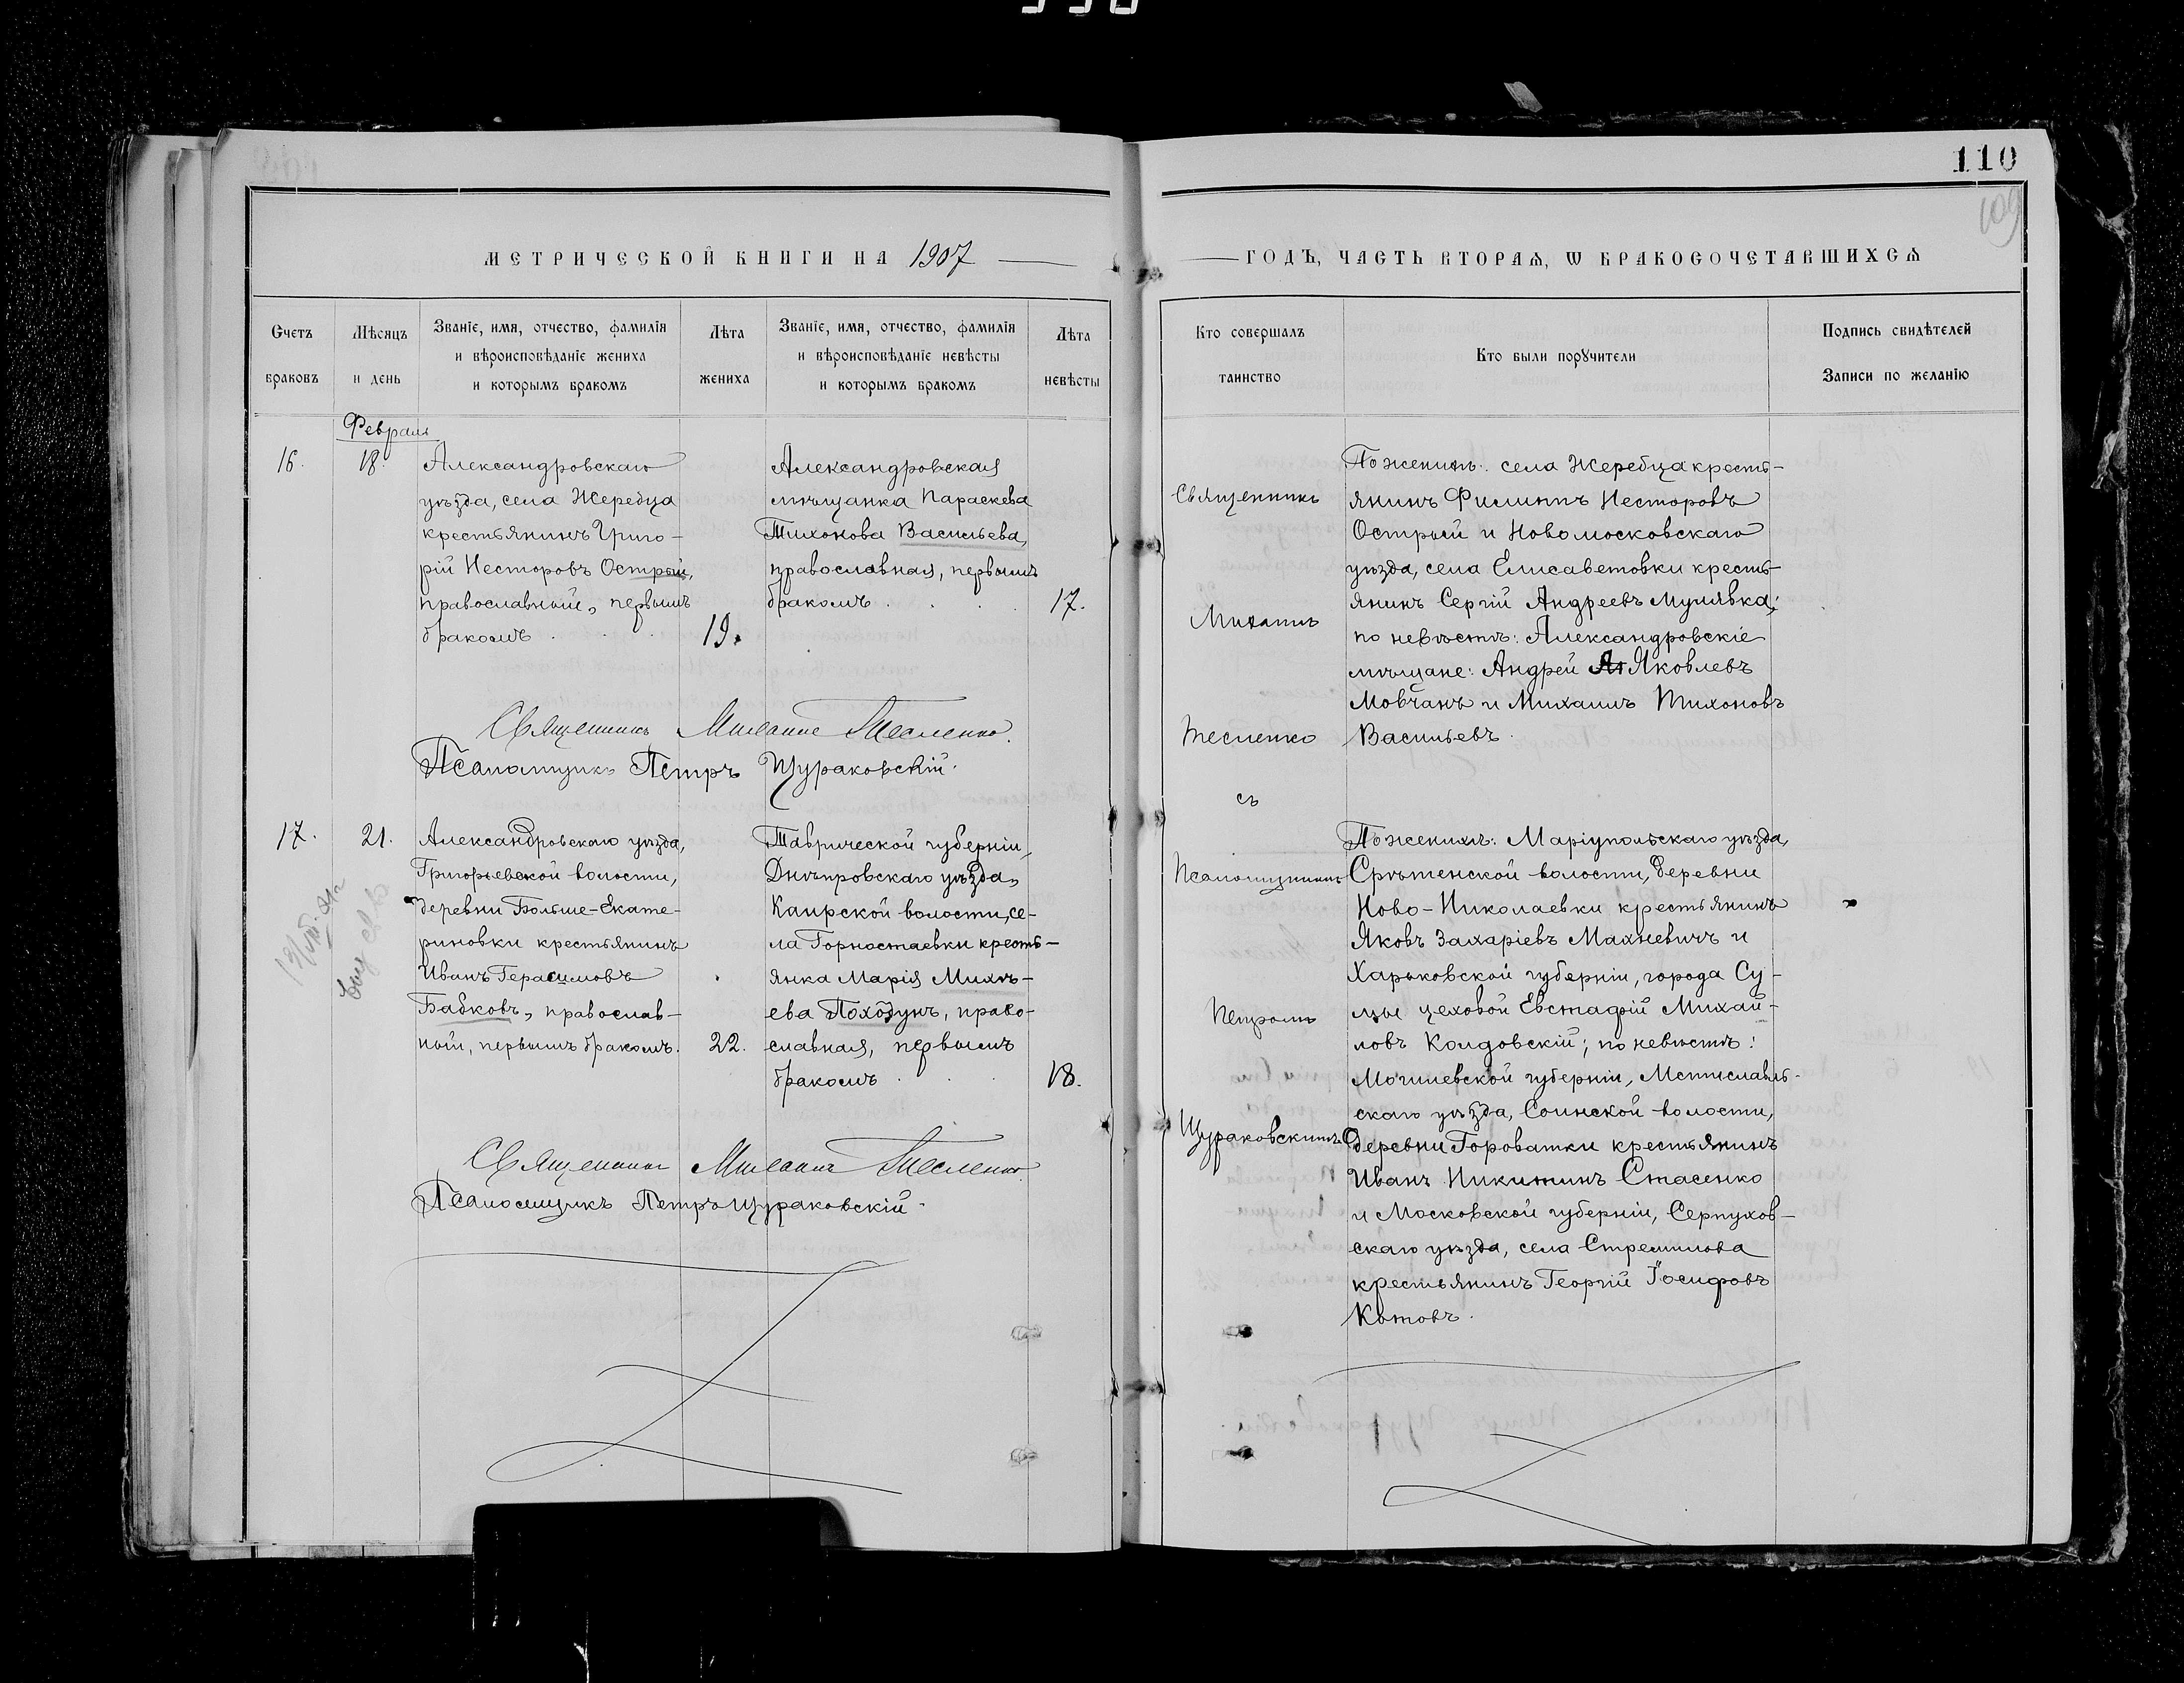 110
109
МЕТРИЧЕСКОЙ КНИГИ НА 1907
ГОДЪ, ЧАСТЬ ВТОРАѦ, Ѡ БРАКОСОЧЕТАВШИХСѦ
Счетъ браковъ
Мѣсяцъ и день
Званіе, имя, отчество, фамилія
и вѣроисповѣданіе жениха
и которымъ бракомъ
Лѣта жениха
Званіе, имя, отчество, фамилія
и вѣроисповѣданіе невѣсты
и которымъ бракомъ
Лѣта невѣсты
Кто совершалъ таинство
Кто были порꙋчители
Подпись свидѣтелей
Записи по желанію
Февраль
16.
18.
Александровскаго
уѣзда, села Жеребца
крестьянинъ Григо-
рій Несторовъ Острый,
православный, первымъ
бракомъ
19.
Александровская
мѣщанка Параскева
Тихонова Васильева,
православная, первымъ
бракомъ
17.
Священникъ Михаилъ Тесленко.
Псаломщикъ Петръ Щураковскій.
17.
21.
Александровскаго уѣзда,
Григорьевской волости,
деревни Больше-Екате-
риновки крестьянинъ
Иванъ Герасимовъ
Бабковъ, православ-
ный, первымъ бракомъ.
22.
Таврической губерніи,
Днѣпровскаго уѣзда,
Каирской волости, се-
ла Горностаевки кресть-
янка Марія Михѣ-
ева Походунъ, право-
славная, первымъ
бракомъ
18.
Священникъ Михаилъ Тесленко
Псаломщикъ Петръ Щураковскій.
Священникъ
Михаилъ
Тесленко
съ
Псаломщикомъ
Петромъ
Щураковскимъ
По женихѣ: села Жеребца кресть-
янинъ Филиппъ Несторовъ
Острый и Новомосковскаго
уѣзда, села Елисаветовки кресть-
янинъ Сергій Андреевъ Мулявка;
по невѣстѣ: Александровскіе
мѣщане: Андрей Яковлевъ
Мовчанъ и Михаилъ Тихоновъ
Васильевъ.
По женихѣ: Маріупольскаго уѣзда,
Срѣтенской волости, деревни
Ново-Николаевки крестьянинъ
Яковъ Захаріевъ Махневичъ и
Харьковской губерніи, города Су-
мы цеховой Евстафій Михай-
ловъ Колдовскій; по невѣстѣ:
Могилевской губерніи, Мстиславль-
скаго уѣзда, Соинской волости,
деревни Гороватки крестьянинъ
Иванъ Никитинъ Стасенко
и Московской губерніи, Серпухов-
скаго уѣзда, села Стремилова
крестьянинъ Георгій Іосифовъ
Котовъ.